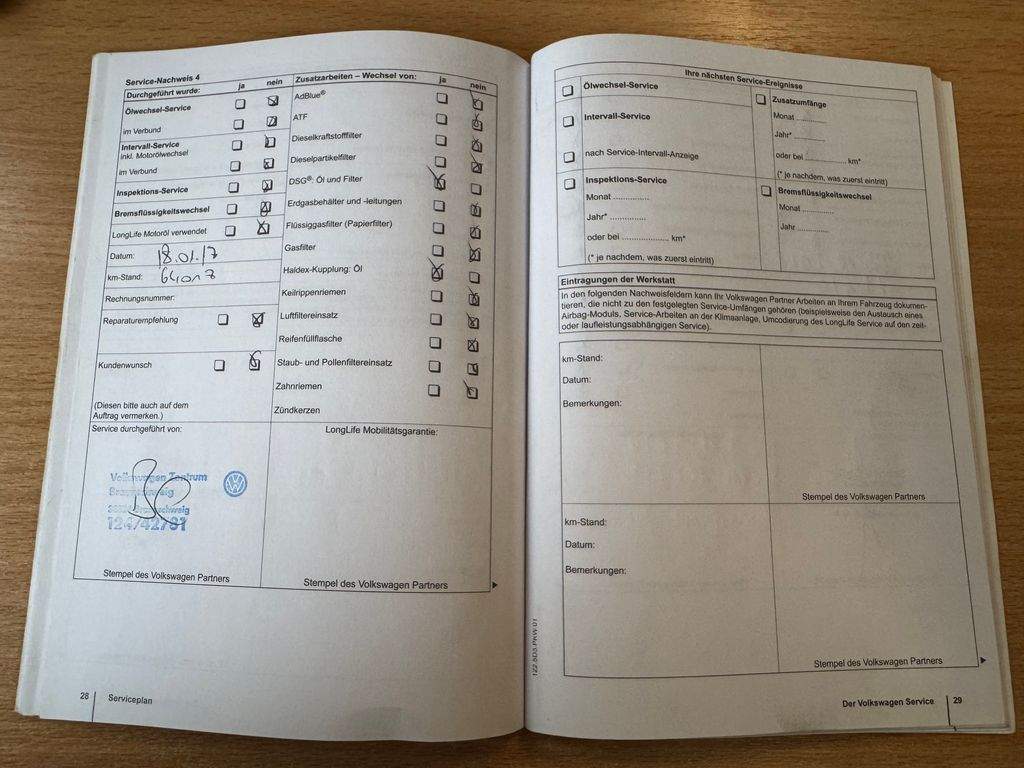 Service-Nachweis 4
Durchgeführt wurde: ja nein
Ölwechsel-Service
im Verbund
Intervall-Service
inkl. Motorölwechsel
im Verbund
Inspektions-Service
Bremsflüssigkeitswechsel
LongLife Motoröl verwendet
Datum: 18.01.17
km-Stand: 64017
Rechnungsnummer:
Reparaturempfehlung
Kundenwunsch
(Diesen bitte auch auf dem
Auftrag vermerken.)
Zusatzarbeiten – Wechsel von: ja nein
AdBlue®
ATF
Dieselkraftstofffilter
Dieselpartikelfilter
DSG®: Öl und Filter
Erdgasbehälter und -leitungen
Flüssiggasfilter (Papierfilter)
Gasfilter
Haldex-Kupplung: Öl
Keilrippenriemen
Luftfiltereinsatz
Reifenfüllflasche
Staub- und Pollenfiltereinsatz
Zahnriemen
Zündkerzen
Service durchgeführt von:
Volkswagen Zentrum
Braunschweig
Braunschweig
124/42781
Stempel des Volkswagen Partners
LongLife Mobilitätsgarantie:
Stempel des Volkswagen Partners
28 Serviceplan
Ihre nächsten Service-Ereignisse
Ölwechsel-Service
Intervall-Service
nach Service-Intervall-Anzeige
Inspektions-Service
Monat ..............
Jahr* ..............
oder bei .................... km*
(* je nachdem, was zuerst eintritt)
Zusatzumfänge
Monat ............
Jahr* ............
oder bei .................. km*
(* je nachdem, was zuerst eintritt)
Bremsflüssigkeitswechsel
Monat ............
Jahr ............
Eintragungen der Werkstatt
In den folgenden Nachweisfeldern kann Ihr Volkswagen Partner Arbeiten an Ihrem Fahrzeug dokumen-
tieren, die nicht zu den festgelegten Service-Umfängen gehören (beispielsweise den Austausch eines
Airbag-Moduls, Service-Arbeiten an der Klimaanlage, Umcodierung des LongLife Service auf den zeit-
oder laufleistungsabhängigen Service).
km-Stand:
Datum:
Bemerkungen:
Stempel des Volkswagen Partners
km-Stand:
Datum:
Bemerkungen:
Stempel des Volkswagen Partners
Der Volkswagen Service 29